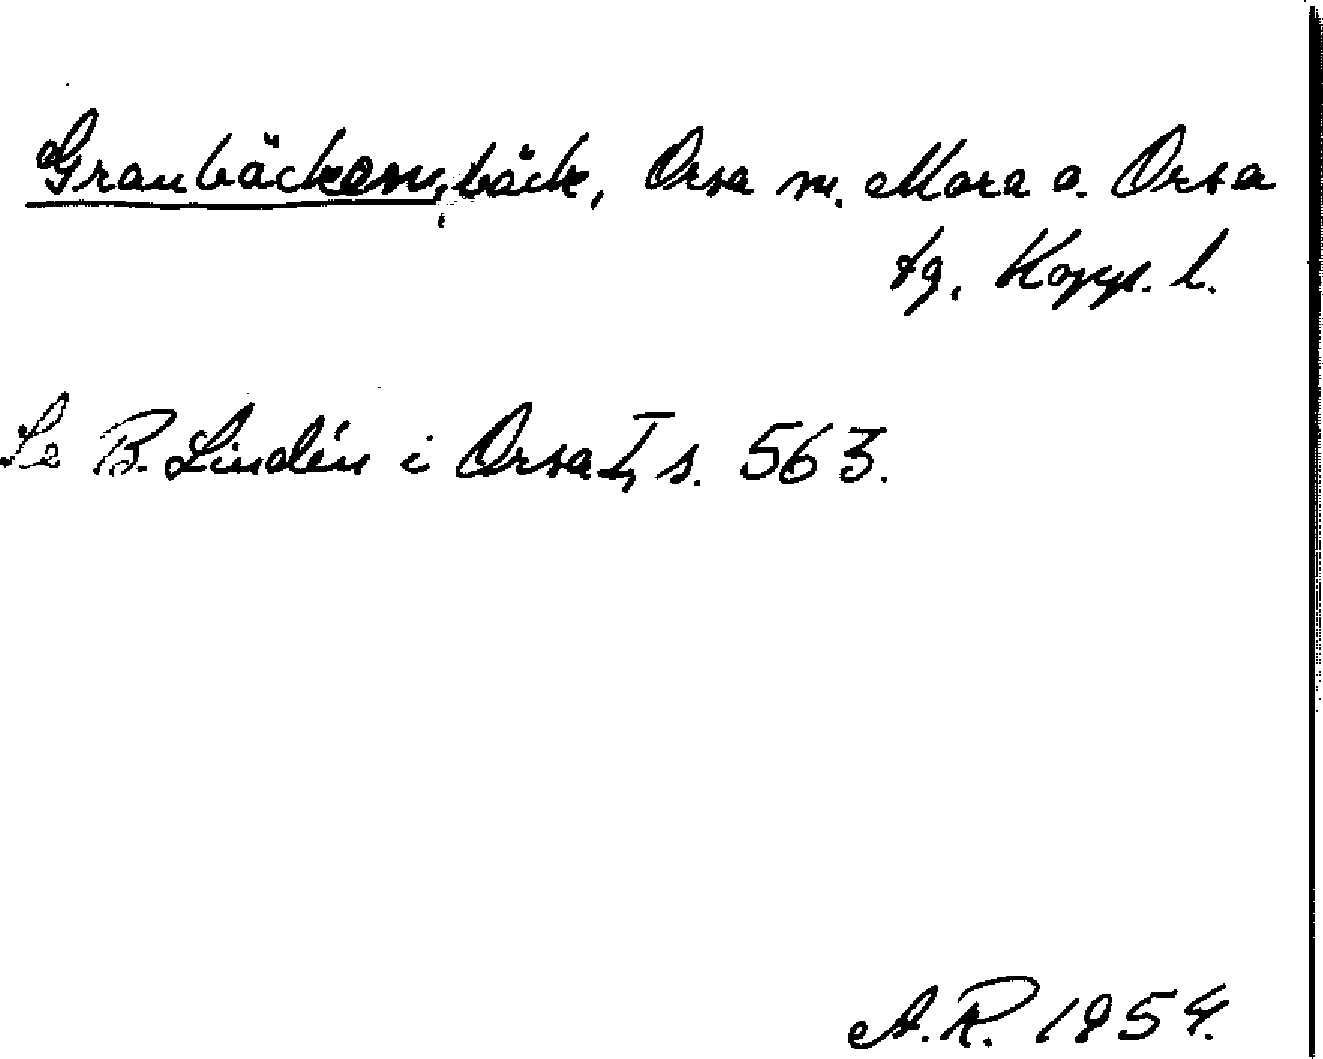 Granbäcken, bäck, Orsa sn. Mora o. Orsa
tg, Kopp. l.
Se B. Lindén i Orsa I, s. 563.
A.R. 1954.